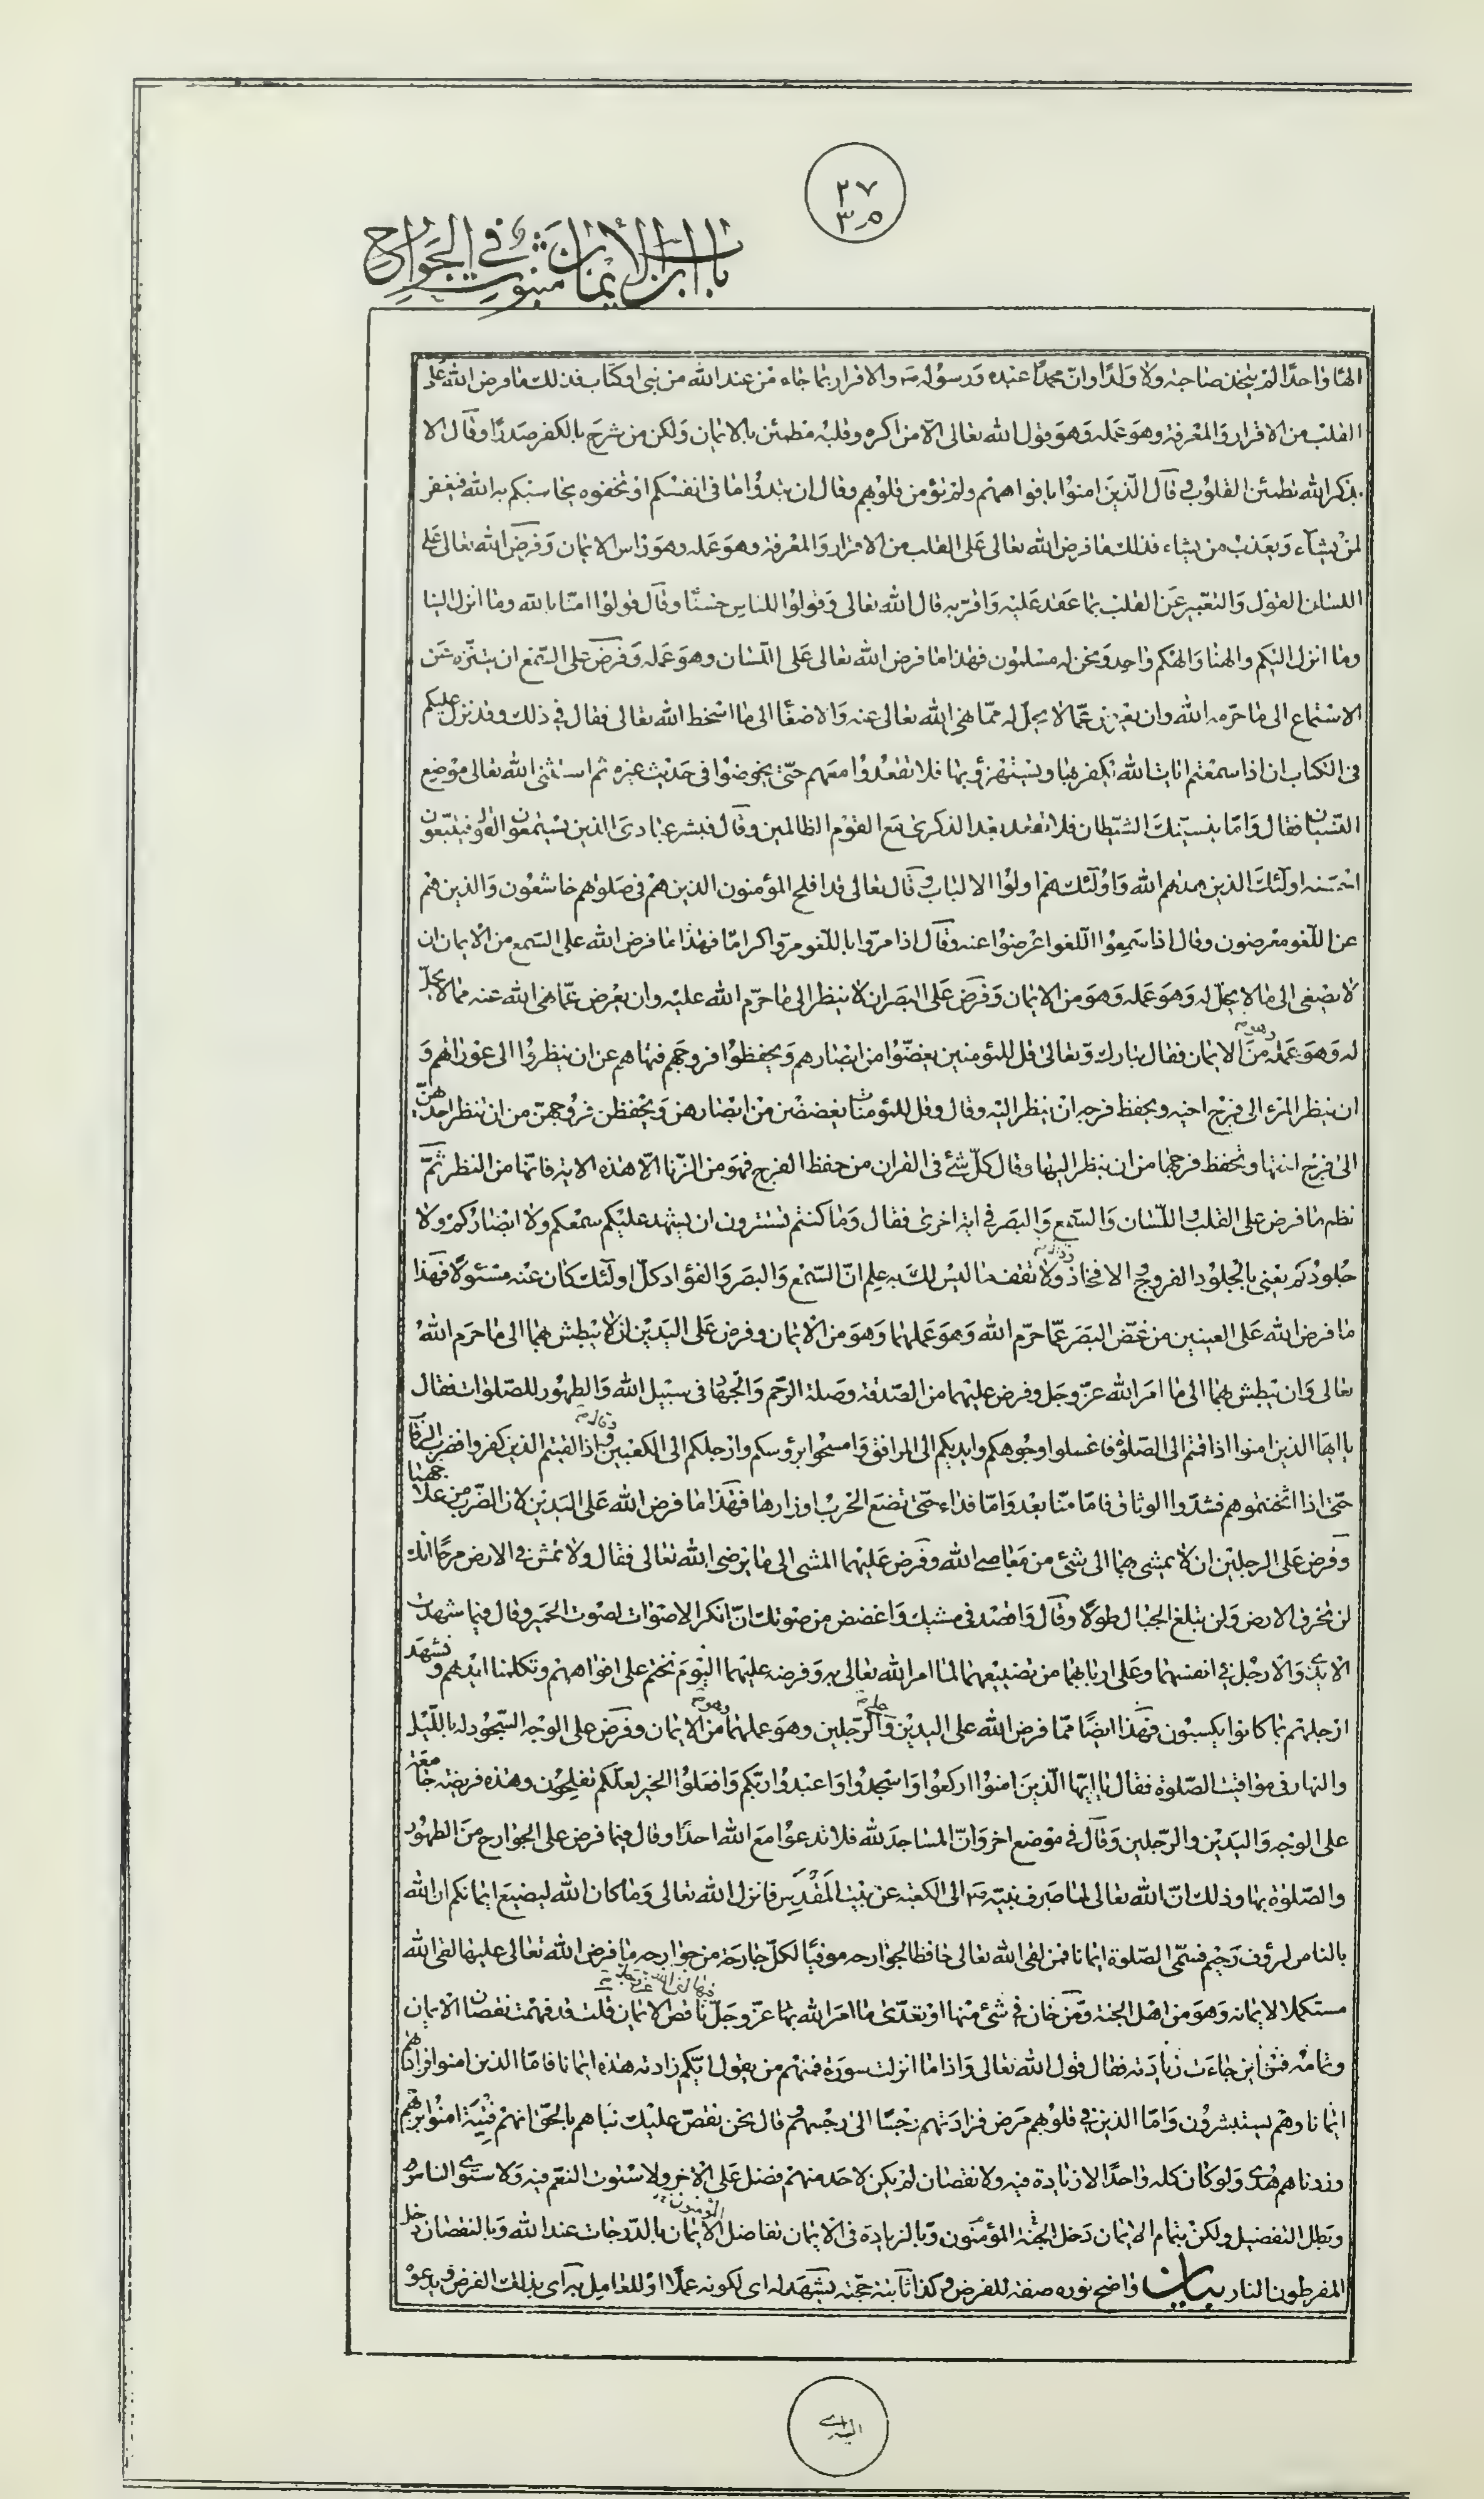 ٢٧
٣٠٥
باب ان الايمان مبثوث في الجوارح
الها واحدا لم يتخذ صاحبة ولا ولدا وان محمدا عبده ورسوله ص والاقرار بما جاء من عند الله من نبي او كتاب فذلك ما فرض الله على
القلب من الاقرار والمعرفة وهو عمله وهو قول الله تعالى الا من اكره وقلبه مطمئن بالايمان ولكن من شرح بالكفر صدرا وقال الا
بذكر الله تطمئن القلوب وقال الذين امنوا بافواههم ولم تؤمن قلوبهم وقال ان تبدوا ما في انفسكم او تخفوه يحاسبكم به الله فيغفر
لمن يشآء ويعذب من يشاء فذلك ما فرض الله تعالى على القلب من الاقرار والمعرفة وهو عمله وهو راس الايمان وفرض الله تعالى على
اللسان القول والتعبير عن القلب بما عقد عليه واقر به قال الله تعالى وقولوا للناس حسنا وقال قولوا امنا بالله وما انزل الينا
وما انزل اليكم والهنا والهكم واحد ونحن له مسلمون فهذا ما فرض الله تعالى على اللسان وهو عمله وفرض على السمع ان يتنزه عن
الاستماع الى ما حرمه الله وان يعرض عما لا يحل له مما نهى الله تعالى عنه والاصغا الى ما اسخط الله تعالى فقال في ذلك وقد نزل عليكم
في الكتاب ان اذا سمعتم ايات الله يكفر بها ويستهزؤ بها فلا تقعدوا معهم حتى يخوضوا في حديث غيره ثم استثنى الله تعالى موضع
النسيان فقال واما ينسينك الشيطان فلا تقعد بعد الذكرى مع القوم الظالمين وقال فبشر عبادي الذين يستمعون القول فيتبعون
احسنه اولئك الذين هديهم الله واولئك هم اولوا الالباب وقال تعالى قد افلح المؤمنون الذين هم في صلوتهم خاشعون والذين هم
عن اللغو معرضون وقال اذا سمعوا اللغو اعرضوا عنه وقال اذا مروا باللغو مروا كراما فهذا ما فرض الله على السمع من الايمان ان
لا يصغي الى ما لا يحل له وهو عمله وهو من الايمان وفرض على البصر ان لا ينظر الى ما حرم الله عليه وان يعرض عما نهى الله عنه مما لا يحل
له وهو عمله وهو من الايمان فقال تبارك وتعالى قل للمؤمنين يغضوا من ابصارهم ويحفظوا فروجهم فنهاهم عن ان ينظروا الى عوراتهم و
ان ينظر المرئ الى فرج اخيه ويحفظ فرجه ان ينظر اليه وقال وقل للمؤمنات يغضضن من ابصارهن ويحفظن فروجهن من ان تنظر احديهن
الى فرج اختها وتحفظ فرجها من ان ينظر اليها وقال كل شئ في القران من حفظ الفرج فهو من الزنا الا هذه الاية فانها من النظر ثم
نظم ما فرض على القلب واللسان والسمع والبصر في اية اخرى فقال وما كنتم تستترون ان يشهد عليكم سمعكم ولا ابصاركم ولا
جلودكم يعني بالجلود الفروج والافخاذ وقال ولا تقف ما ليس لك به علم ان السمع والبصر والفؤاد كل اولئك كان عنه مسئولا فهذا
ما فرض الله على العينين من غض البصر عما حرم الله وهو عملهما وهو من الايمان وفرض على اليدين ان لا يبطش بهما الى ما حرم الله
تعالى وان يبطش بهما الى ما امر الله عز وجل وفرض عليهما من الصدقة وصلة الرحم والجهاد في سبيل الله والطهور للصلوات فقال
يا ايها الذين امنوا اذا قمتم الى الصلوة فاغسلوا وجوهكم وايديكم الى المرافق وامسحوا برؤسكم وارجلكم الى الكعبين وقال فاذا لقيتم الذين كفروا فضرب الرقاب
حتى اذا اثخنتموهم فشدوا الوثاق فاما منا بعد واما فداء حتى تضع الحرب اوزارها فهذا ما فرض الله على اليدين لان الضرب من علاجهما
وفرض على الرجلين ان لا يمشى بهما الى شئ من معاصي الله وفرض عليهما المشى الى ما يرضى الله تعالى فقال ولا تمش في الارض مرحا انك
لن تخرق الارض ولن تبلغ الجبال طولا وقال واقصد في مشيك واغضض من صوتك ان انكر الاصوات لصوت الحمير وقال فيما شهدت
الايدي والارجل في انفسهما وعلى اربابهما من تضييعهما لما امر الله تعالى به وفرضه عليهما اليوم نختم على افواههم وتكلمنا ايديهم وتشهد
ارجلهم بما كانوا يكسبون فهذا ايضا مما فرض الله على اليدين وعلى الرجلين وهو عملهما وهو من الايمان وفرض على الوجه السجود له بالليل
والنهار في مواقيت الصلوة فقال يا ايها الذين امنوا اركعوا واسجدوا واعبدوا ربكم وافعلوا الخير لعلكم تفلحون وهذه فريضة جامعة
على الوجه واليدين والرجلين وقال في موضع اخر وان المساجد لله فلا تدعوا مع الله احدا وقال فيما فرض على الجوارح من الطهور
والصلوة بها وذلك ان الله تعالى لما صرف نبيه ص الى الكعبة عن بيت المقدس فانزل الله تعالى وما كان الله ليضيع ايمانكم ان الله
بالناس لرؤف رحيم فسمى الصلوة ايمانا فمن لقى الله تعالى حافظا لجوارحه موفيا لكل جارحة من جوارحه ما فرض الله تعالى عليها لقى الله
مستكملا لايمانه وهو من اهل الجنة ومن خان في شئ منها او تعدى ما امر الله بها عز وجل ناقص الايمان قلت قد فهمت نقصان الايمان
وتمامه فمن اين جاءت زيادته فقال قول الله تعالى واذا ما انزلت سورة فمنهم من يقول ايكم زادته هذه ايمانا فاما الذين امنوا فزادتهم
ايمانا وهم يستبشرون واما الذين في قلوبهم مرض فزادتهم رجسا الى رجسهم وقال نحن نقص عليك نباهم بالحق انهم فتية امنوا بربهم
وزدناهم هدى ولو كان كله واحدا لا زيادة فيه ولا نقصان لم يكن لاحد منهم فضل على الاخر ولا ستوت النعم فيه ولا ستوى الناس و
وبطل التفضيل ولكن بتمام الايمان دخل الجنة المؤمنون وبالزيادة في الايمان تفاضل المؤمنون بالدرجات عند الله وبالنقصان دخل
المفرطون النار بيان واضح نوره صفة للفرض وكذا ثابتة حجته يشهد له اي لكونه عملا او للعامل به اي بذلك الفرض ويدعوه
اليه اي